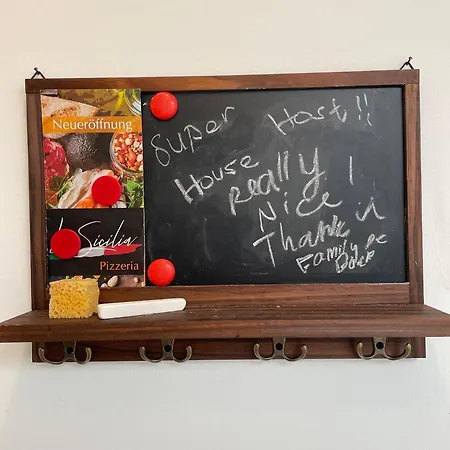 Neueröffnung
La Sicilia
Pizzeria
Super Host!!
House really!
Nice
Thank
Family